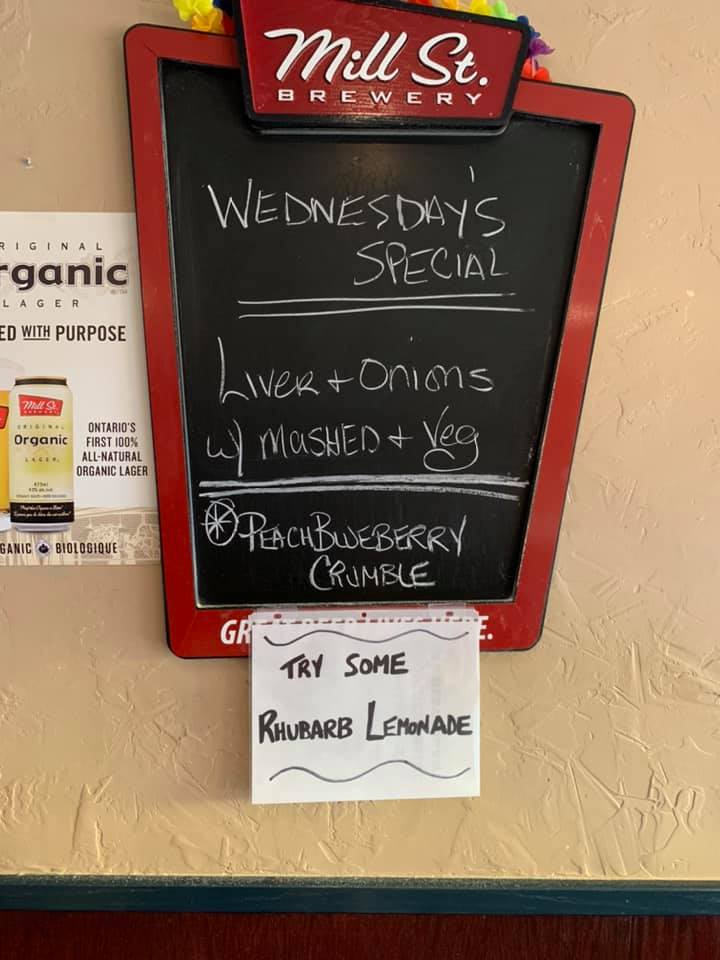 Mill St.
BREWERY
WEDNESDAY'S
SPECIAL
LIVER + ONIONS
W/ MASHED + Veg
PEACH BLUEBERRY
CRUMBLE
TRY SOME
RHUBARB LEMONADE
RIGINAL
rganic
LAGER
ED WITH PURPOSE
Mill St.
ORIGINAL
Organic
LAGER
ONTARIO'S
FIRST 100%
ALL-NATURAL
ORGANIC LAGER
GANIC BIOLOGIQUE